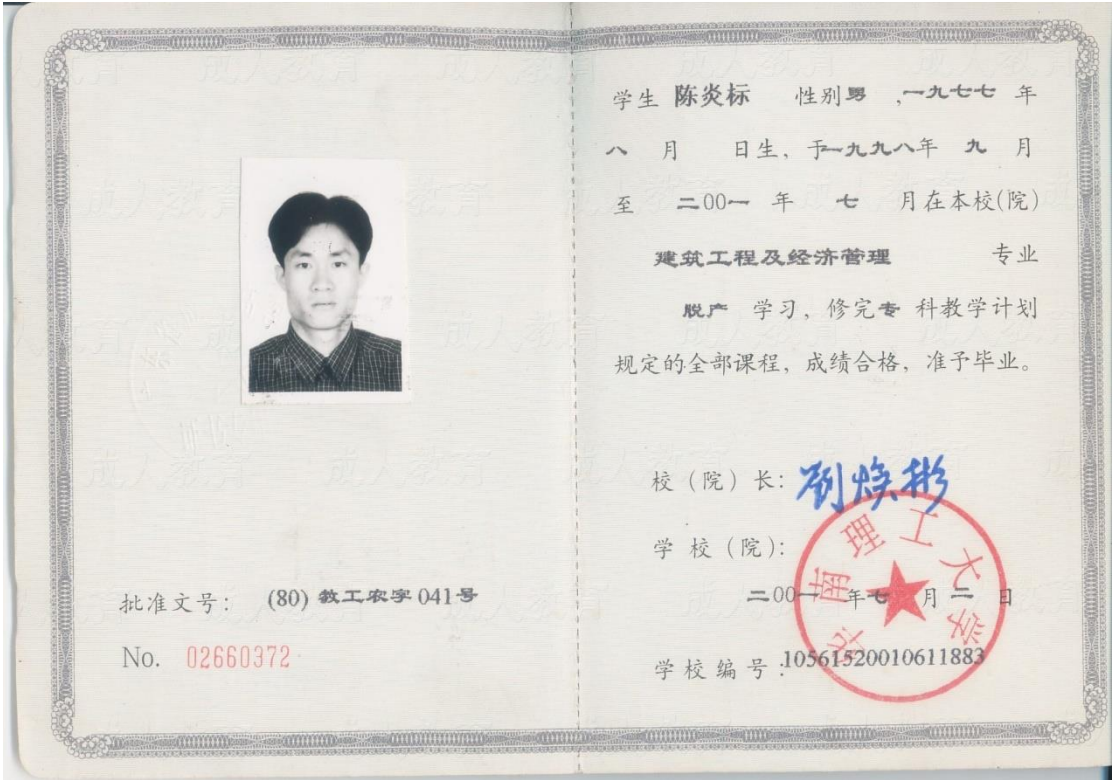 批准文号: (80) 教工农字 041号
No. 02660372
学生 陈炎标 性别男 ,一九七七 年
八 月 日生, 于一九九八年 九 月
至 二00一 年 七 月在本校(院)
建筑工程及经济管理 专业
脱产 学习, 修完专 科教学计划
规定的全部课程, 成绩合格, 准予毕业。
校 (院) 长: 刘焕彬
学 校 (院):
华南理工大学
二00一 年七 月 二 日
学校编号:10561520010611883
成人教育